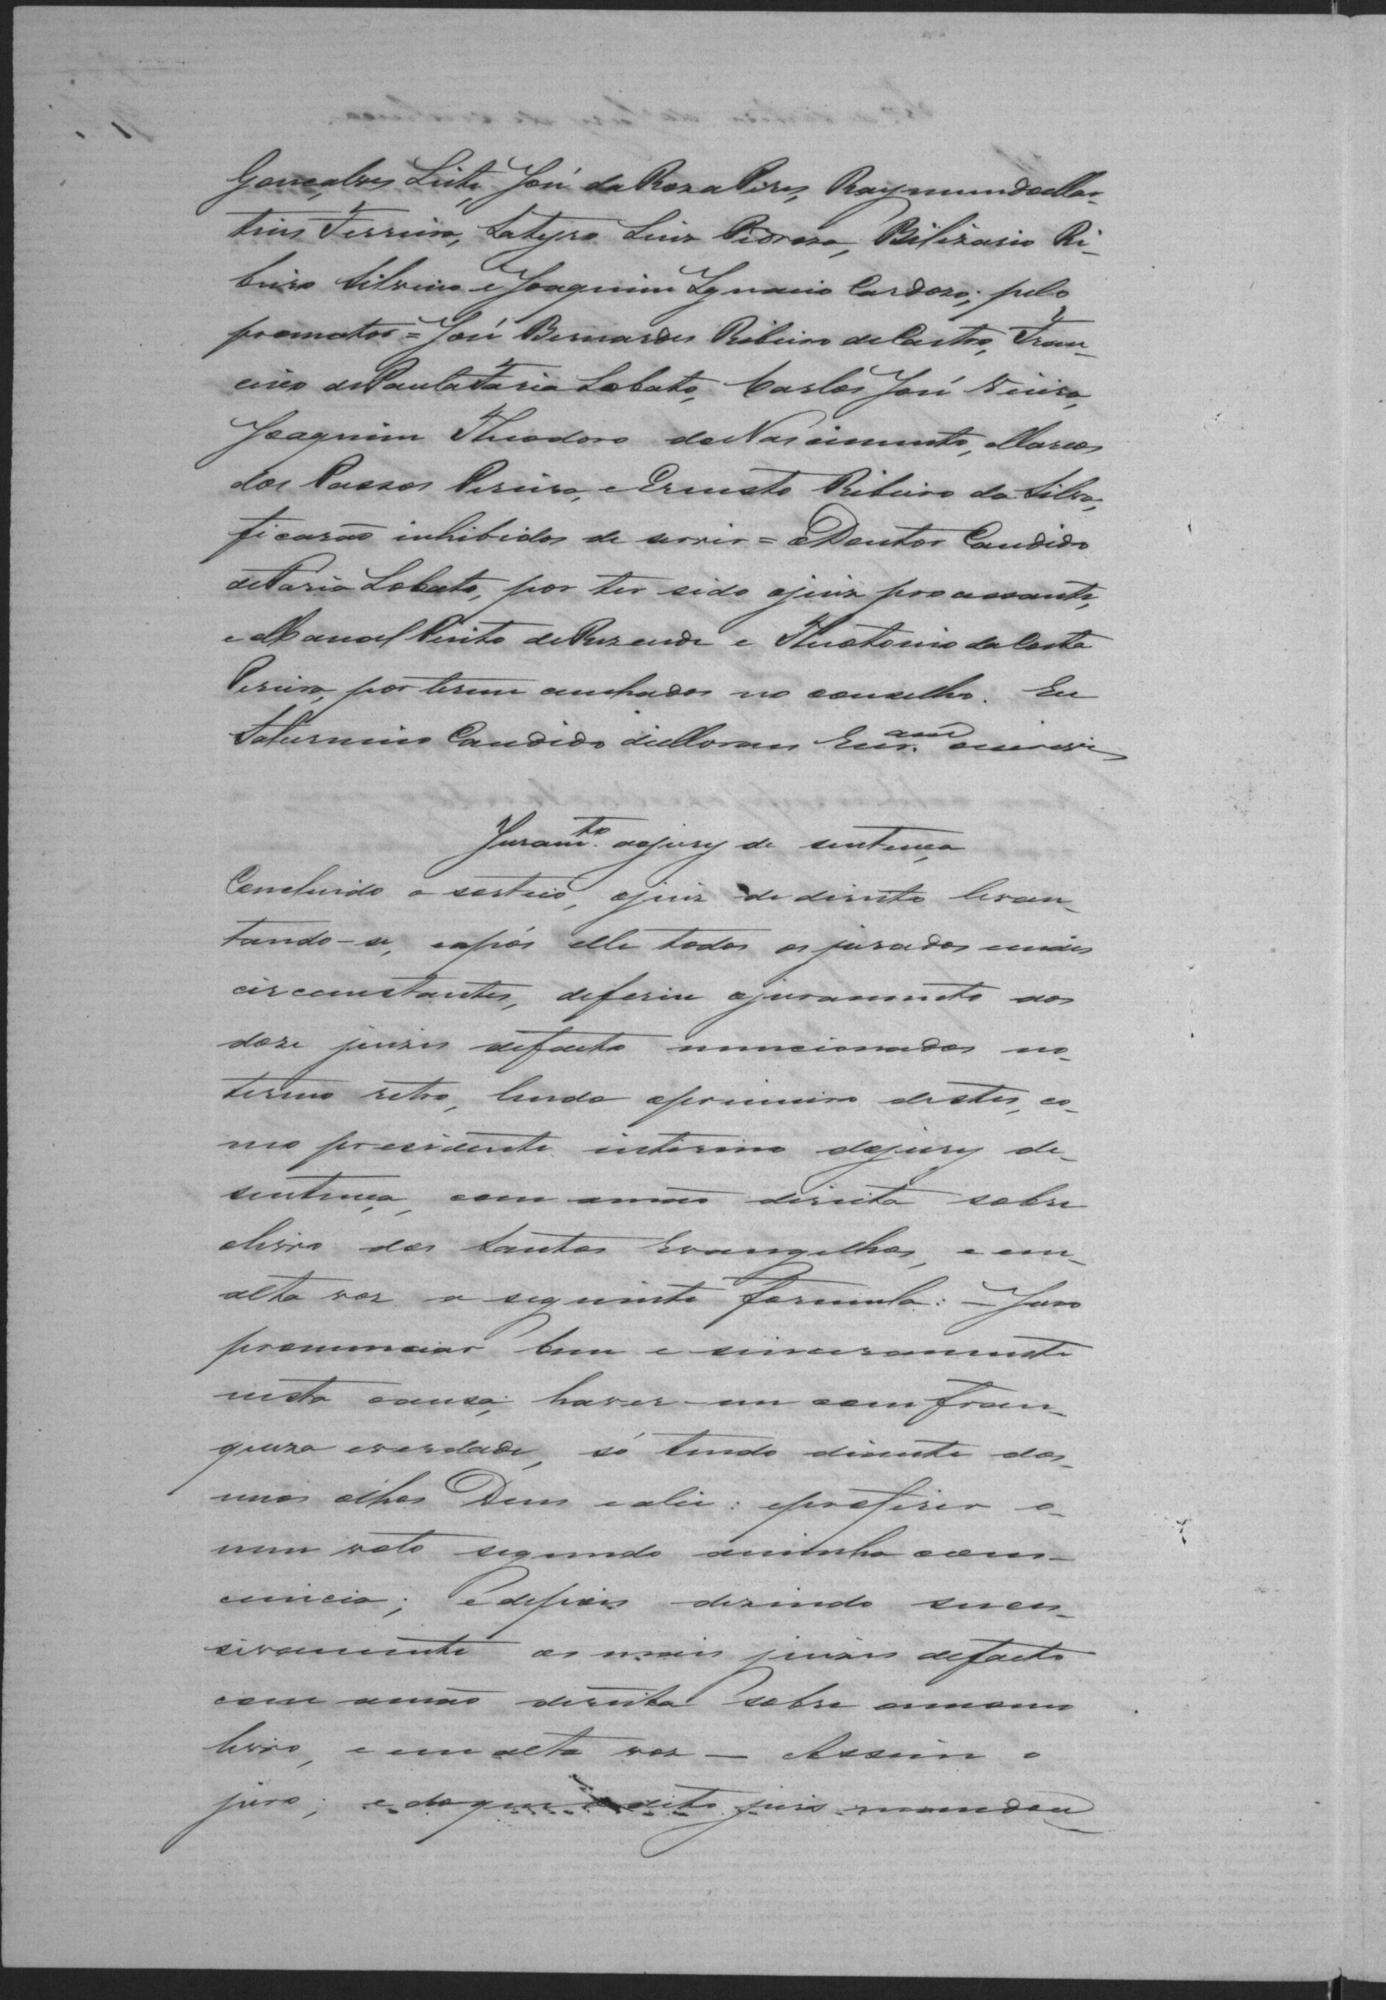 Gonçalves Leite, José da Roza Pires, Raymundo Mar-
tins Ferreira, Satyro Luiz Pedroza, Bilizario Ri-
beiro Silverio e Joaquim Ignacio Cardozo; pelo
promotor = José Bernardes Ribeiro de Castro, Fran-
cisco de Paula Faria Lobato, Carlos José Vieira,
Joaquim Theodoro do Nascimento, Marcos
dos Passos Pereira, e Ernesto Ribeiro da Silva,
ficarão inhibidos de servir = o Doutor Candido
de Faria Lobato, por ter sido o juiz processante,
e Manoel Pinto de Rezende e Theotonio da Costa
Pereira, por serem cunhados no conselho. Eu
Saturnino Candido de Moraes Escr.am o escrevi
Juram.to ao jury de sentença
Concluido o sorteio, o juiz de direito levan-
tando-se, e após elle todos os jurados e mais
circonstantes, deferiu o juramento aos
doze juizes de facto mencionados no
termo retro, lendo o primeiro destes, co-
mo presidente interino do jury de
sentença, com a mão direita sobre
o livro dos Santos Evangelhos, e em
alta voz a seguinte formula: - Juro
pronunciar bem e sinceramente
nesta causa; haver-me com fran-
queza e verdade, só tendo diante dos
meus olhos Deus e a lei: e proferir o
meu voto segundo a minha cons-
ciencia; e depois dizendo succes-
sivamente os mais juizes de facto
com a mão direita sobre o mesmo
livro, e em alta voz — Assim o
juro; e do que o dito juiz mandou